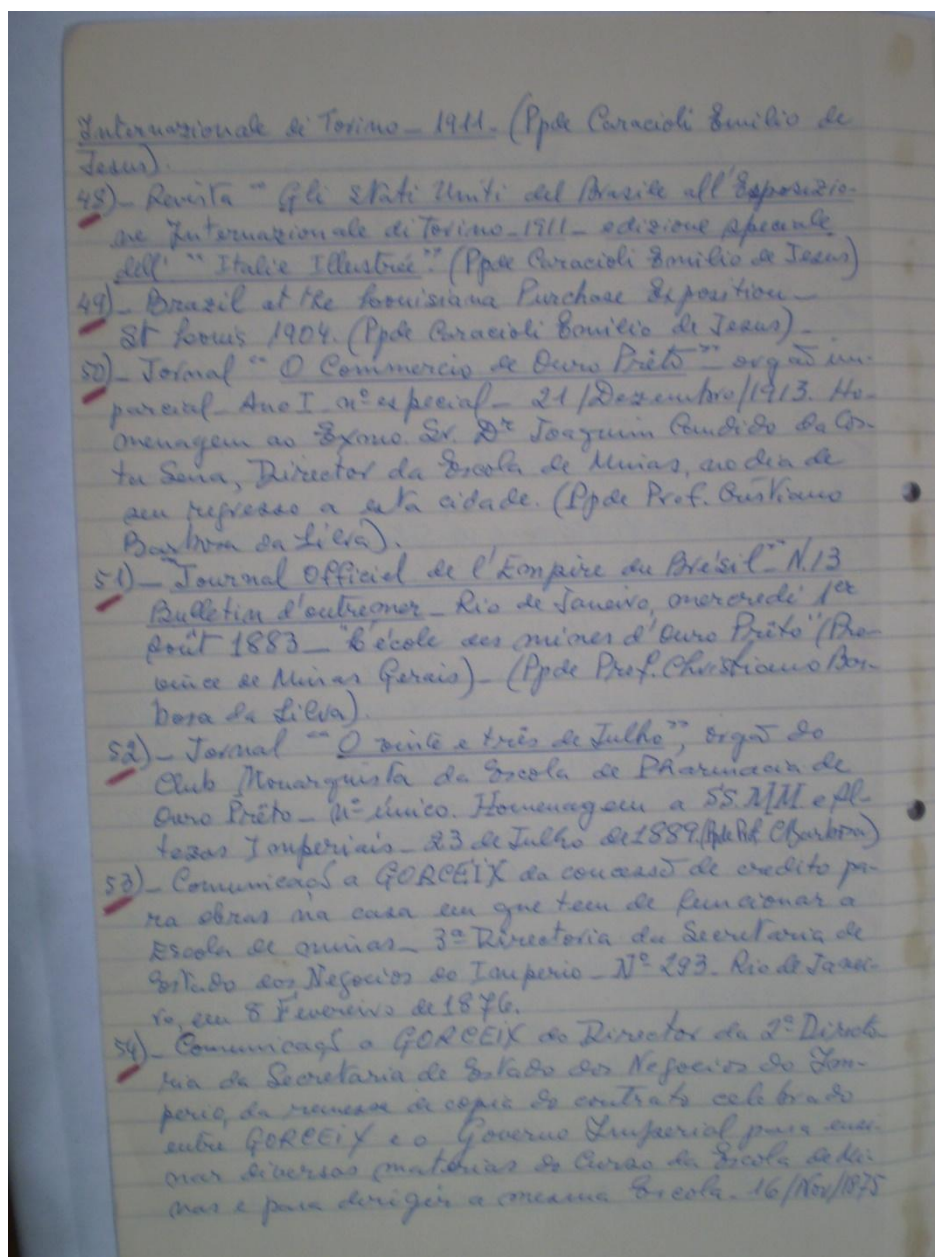 Internazionale di Torino - 1911 - (Ppde Caracioli Emilio de
Jesus).
48) - Revista "Gli Stati Uniti del Brasile all'Esposizio-
ne Internazionale di Torino - 1911 - edizione speciale
dell' "Italie Illustrée". (Ppde Caracioli Emilio de Jesus)
49) - Brazil at the Louisiana Purchase Exposition -
St Louis 1904. (Ppde Caracioli Emilio de Jesus) -
50) - Jornal "O Commercio de Ouro Prêto" - orgão im-
parcial - Ano I - nº especial - 21/Dezembro/1913. Ho-
menagem ao Exmo. Sr. Dr Joaquim Candido da Cos-
ta Sena, Director da Escola de Minas, no dia de
seu regresso a esta cidade. (Ppde Prof. Cristiano
Barbosa da Silva).
51) - "Journal Officiel de l'Empire du Brésil" - N.13
Bulletin d'outremer - Rio de Janeiro, mercredi 1er
Août 1883 - "L'école des mines d'Ouro Prêto" (Pro-
vince de Minas Gerais) - (Ppde Prof. Christiano Bar-
bosa da Silva).
52) - Jornal "O vinte e três de Julho", orgão do
Club Monarquista da Escola de Pharmacia de
Ouro Prêto - nº único. Homenagem a SS.MM e Al-
tezas Imperiais - 23 de Julho de 1889. (Ppde Prof. C Barbosa)
53) - Comunicação a GORCEIX da concessão de credito pa-
ra obras na casa em que tem de funcionar a
Escola de minas - 3ª Directoria da Secretaria de
Estado dos Negocios do Imperio - Nº 293. Rio de Janei-
ro, em 8 Fevereiro de 1876.
54) - Comunicação a GORCEIX do Director da 2ª Directo
ria da Secretaria de Estado dos Negocios do Im-
perio, da remessa da copia do contrato celebrado
entre GORCEIX e o Governo Imperial para ensi-
nar diversas materias do Curso da Escola de Mi-
nas e para dirigir a mesma Escola - 16/Nov/1875